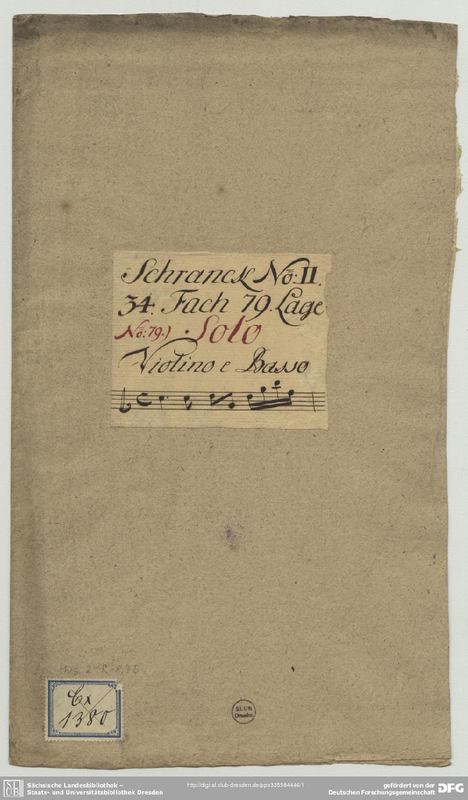 Schranck No: II.
34. Fach 79. Lage
No: 79.) . Solo
Violino e Basso
Mus. 2-R-8,75
Cx
1380
SLUB
Dresden
Sächsische Landesbibliothek –
Staats- und Universitätsbibliothek Dresden
gefördert von der
Deutschen Forschungsgemeinschaft
DFG